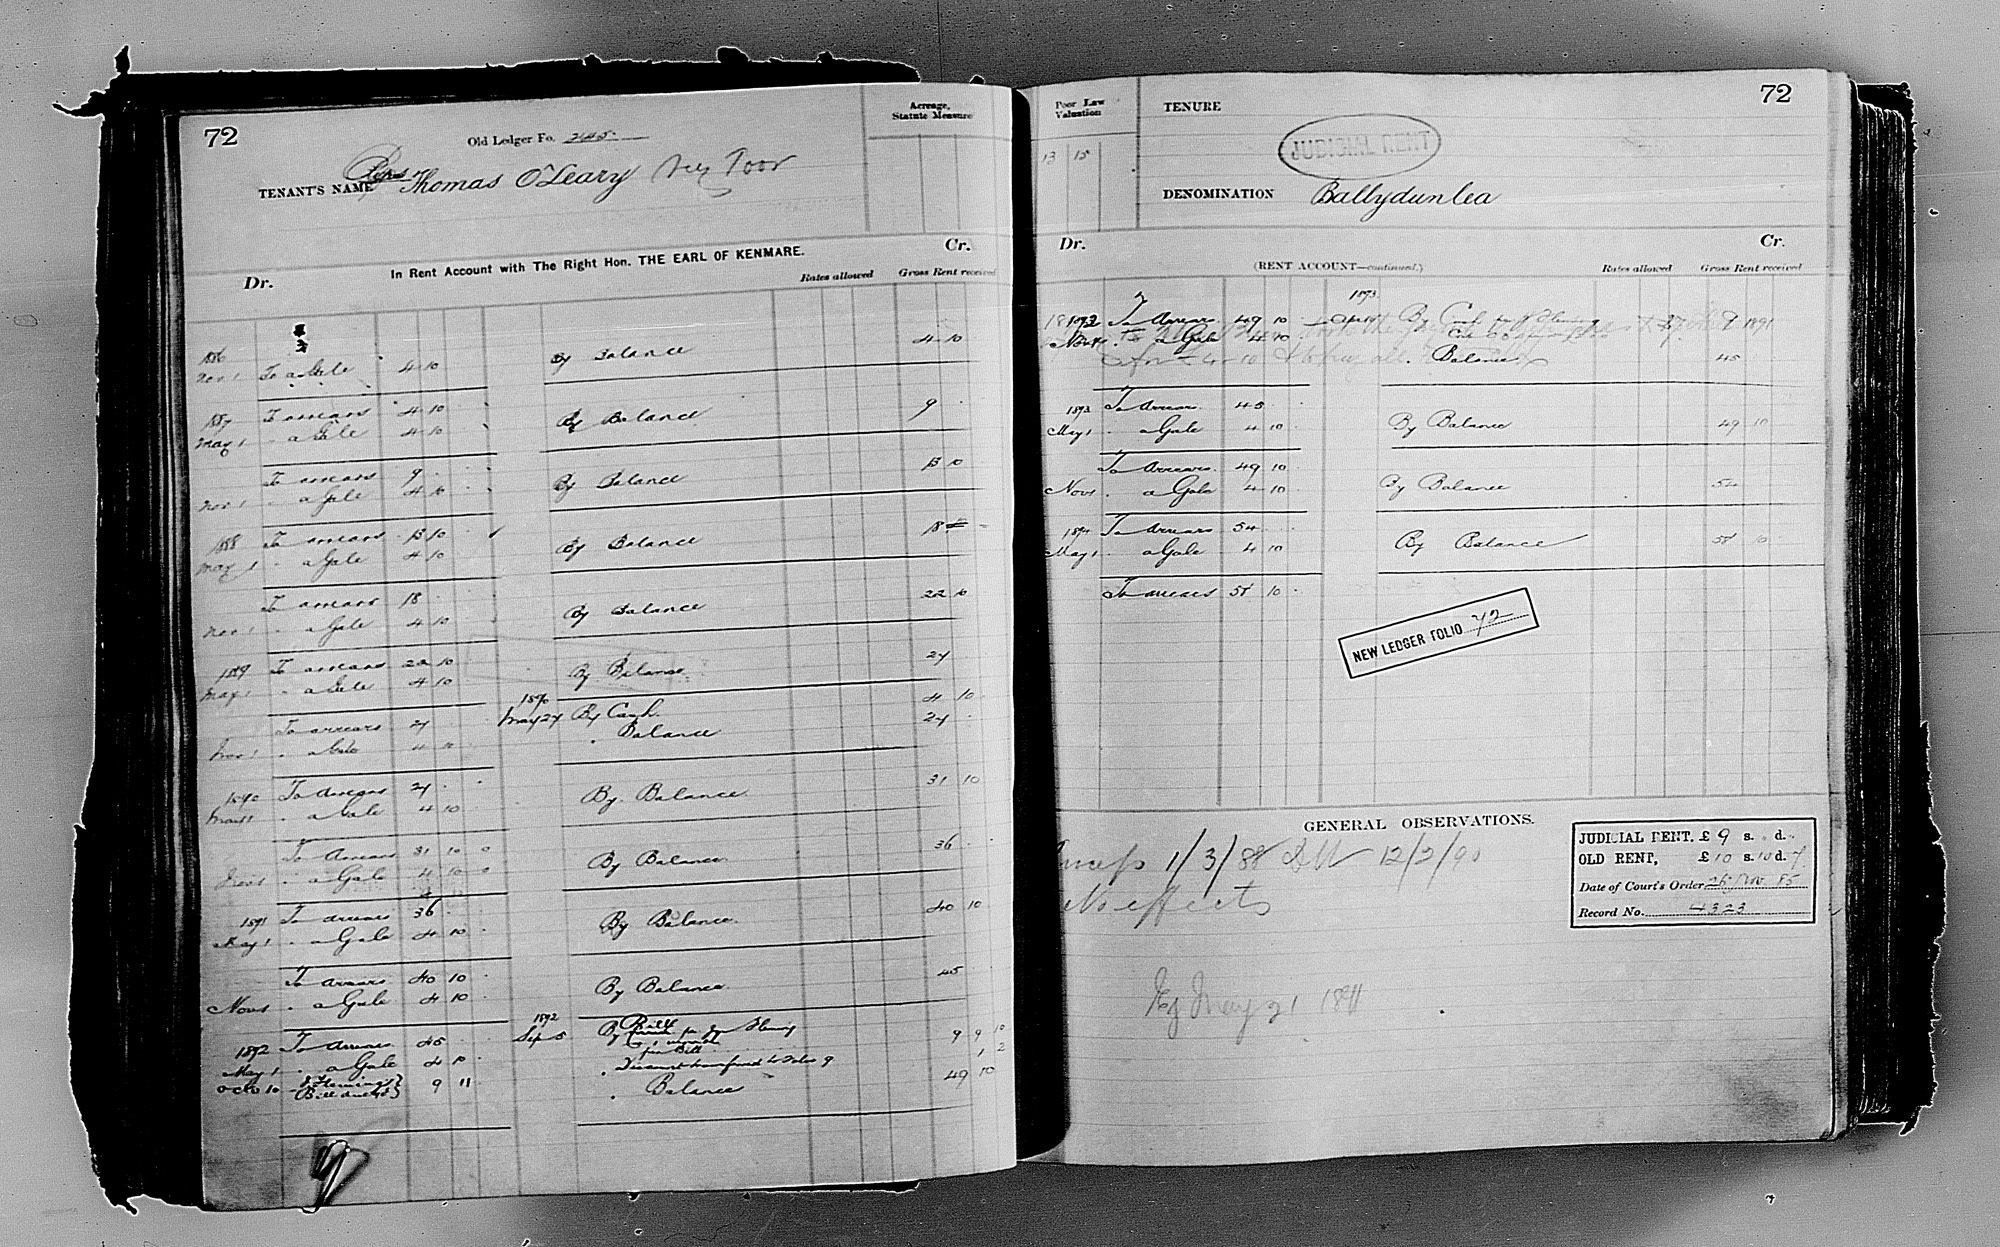 72
Old Ledger Fo. 245
Acreage,
Statute Measure
TENANT'S NAME Reps Thomas O'Leary Very Poor
In Rent Account with The Right Hon. THE EARL OF KENMARE.
Dr.
Cr.
Rates allowed
Gross Rent received
1886
Nov 1 To a Gale 4 10 By Balance 4 10
1887 To arrears 4 10
May 1 " a Gale 4 10 By Balance 9
To arrears 9
Nov 1 " a Gale 4 10 By Balance 13 10
1888 To arrears 13 10
May 1 " a Gale 4 10 By Balance 18
To arrears 18
Nov 1 " a Gale 4 10 By Balance 22 10
1889 To arrears 22 10
May 1 " a Gale 4 10 By Balance 27
1890
To arrears 27 May 27 By Cash 4 10
Nov 1 " a Gale 4 10 " Balance 27
1890 To Arrears 27
May 1 " a Gale 4 10 By Balance 31 10
To Arrears 31 10 0
Nov 1 " a Gale 4 10 0 By Balance 36
1891 To arrears 36
May 1 " a Gale 4 10 By Balance 40 10
To arrears 40 10
Nov 1 " a Gale 4 10 By Balance 45
1892
1892 To Arrears 45 Sep 5 By Bill 9 9 10
May 1 " a Gale 4 10 per Bill 1 2
Octo 10 J Flemings Bill 9 11 " Discount transferred to Folio 9
" Balance 49 10
72
Poor Law
Valuation
13 15
TENURE
JUDICIAL RENT
DENOMINATION Ballydunlea
Dr.
(RENT ACCOUNT—continued.)
Cr.
Rates allowed
Gross Rent received
1893
1892 To Arrears 49 10 By Cash 9
Nov 1 " a Gale 4 10
" Balance 45
1893 To Arrears 45
May 1 " a Gale 4 10 By Balance 49 10
To Arrears 49 10
Nov 1 " a Gale 4 10 By Balance 54
1894 To Arrears 54
May 1 " a Gale 4 10 By Balance 58 10
To arrears 58 10
NEW LEDGER FOLIO 72
GENERAL OBSERVATIONS.
1/3/88 12/2/90
No effects
May 21 1891
JUDICIAL RENT, £ 9 s. d.
OLD RENT, £ 10 s. 10 d. 7
Date of Court's Order 26 Nov 85
Record No. 4323